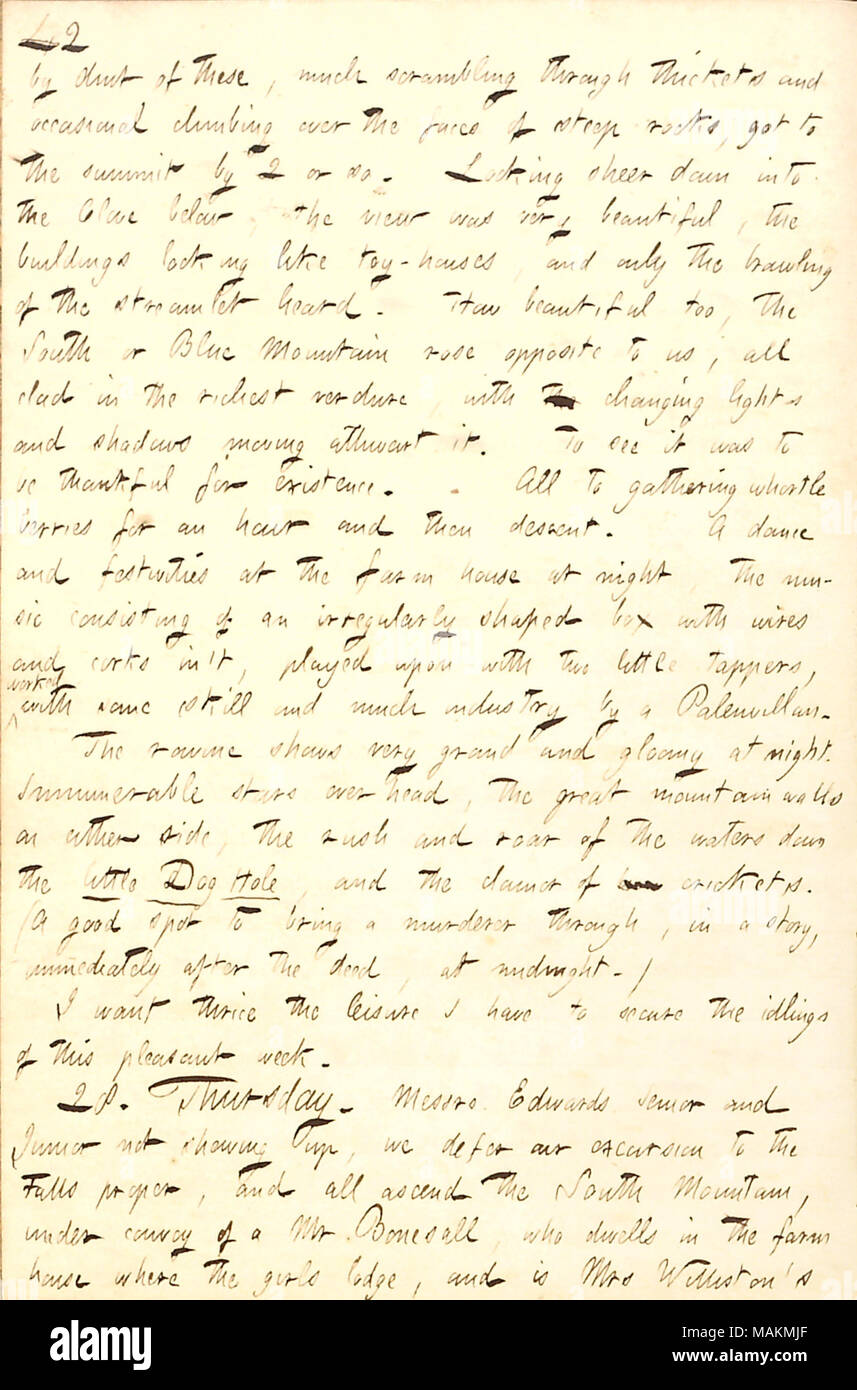 2
by dint of these, much scrambling through thickets and
occasional climbing over the faces of steep rocks, got to
the summit by 2 or so. Looking sheer down into
the Clove below, the view was very beautiful, the
buildings looking like toy-houses, and only the brawling
of the streamlet heard. How beautiful too, the
South or Blue Mountain rose opposite to us, all
clad in the richest verdure, with changing lights
and shadows moving athwart it. To see it was to
be thankful for existence. All to gathering whortle
berries for an hour and then descent. A dance
and festivities at the farm house at night, the mu-
sic consisting of an irregularly shaped box with wires
and corks in't, played upon with two little tappers,
worked
with some skill and much industry by a Palenvillan.
The ravine shows very grand and gloomy at night.
Innumerable stars over head, the great mountain walls
on either side, the rush and roar of the waters down
the little Dog Hole, and the clamor of crickets.
(A good spot to bring a murderer through, in a story,
immediately after the deed, at midnight.)
I want thrice the leisure I have to secure the idlings
of this pleasant week.
28. Thursday. Messrs. Edwards Senior and
Junior not showing up, we defer our excursion to the
Falls proper, and all ascend the South Mountain,
under convoy of a Mr Bonesall, who dwells in the farm
house where the girls lodge, and is Mrs Williston's
alamy
Image ID: MAKMJF
www.alamy.com